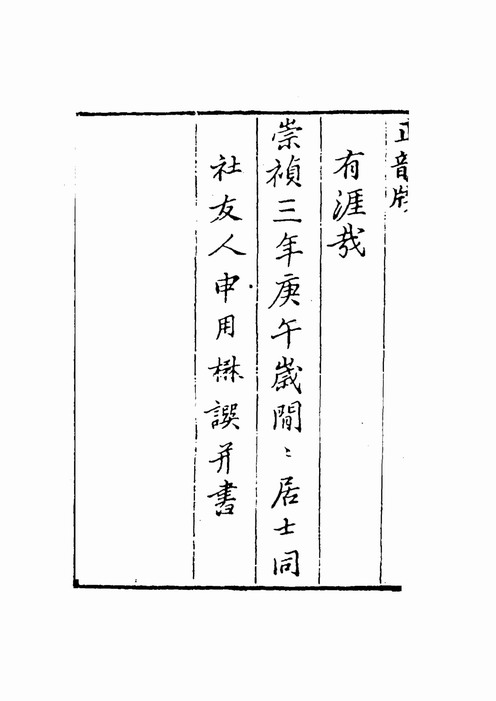 正音
有涯哉
崇禎三年庚午歲閒〻居士同
社友人申用楙譔并書